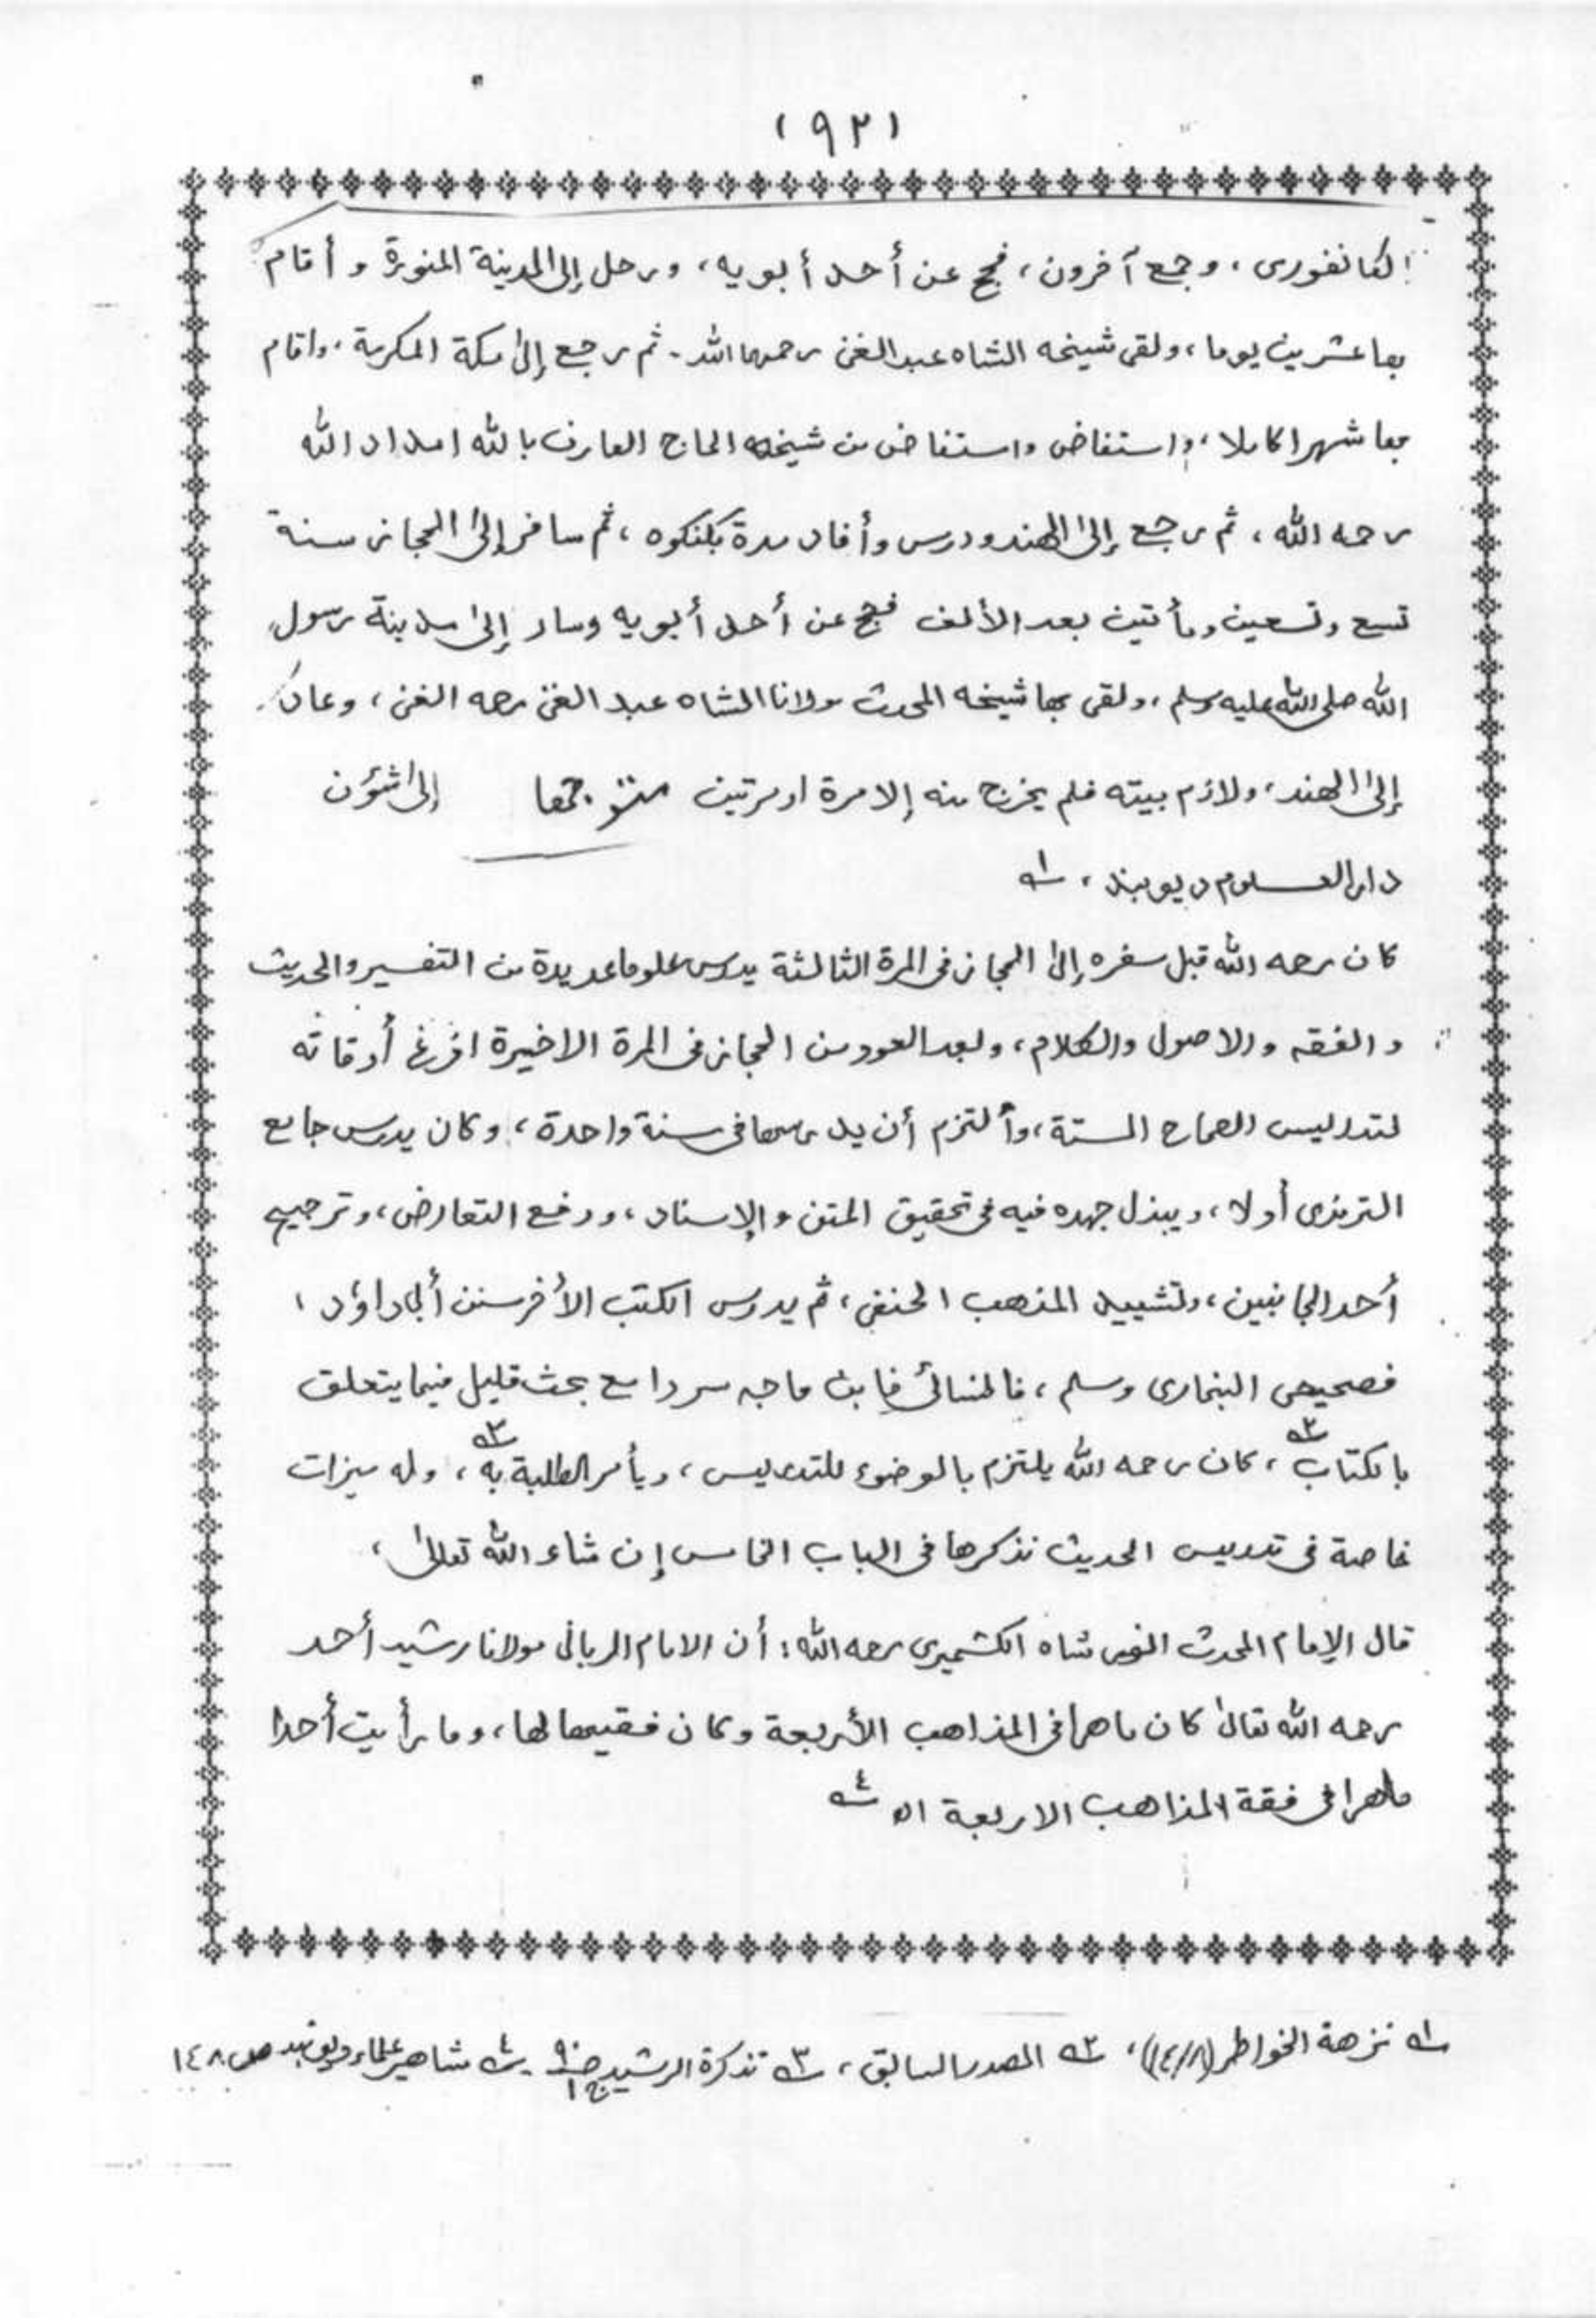 (١٩٢)
الكانفورى، وجمع آخرون، فحج عن أحد أبويه، ورحل إلى المدينة المنورة وأقام
بها عشرين يوما، ولقى شيخه الشاه عبد الغنى رحمهما الله۔ ثم رجع إلى مكة المكرمة، واقام
بها شهرا كاملا، واستفاض واستفاض من شيخه الحاج العارف بالله امداد الله
رحمه الله، ثم رجع إلى الهند ودرس وأفاد مدة بگنگوه، ثم سافر إلى الحجاز سنة
تسع وتسعين ومأتين بعد الألف فحج عن أحد أبويه وسار إلى مدينة رسول
الله صلى الله عليه وسلم، ولقى بها شيخه المحدث مولانا الشاه عبد الغنى رحمه الغنى، وعاد
إلى الهند، ولازم بيته فلم يخرج منه إلا مرة او مرتين إلى شؤن
دار العلوم ديوبند، ١ه
كان رحمه الله قبل سفره إلى الحجاز فى المرة الثالثة يدرس علوما عديدة من التفسير والحديث
والفقه والاصول والكلام، وبعد العود من الحجاز فى المرة الاخيرة افرغ أوقاته
لتدريس الصحاح الستة، وألتزم أن يدرسها فى سنة واحدة، وكان يدرس جامع
الترمذى أولا، ويبذل جهده فيه فى تحقيق المتن والإسناد، ودفع التعارض، وترجيح
أحد الجانبين، وتشييد المذهب الحنفى، ثم يدرس الكتب الأخر سنن أبى داؤد،
فصحيحى البخارى ومسلم، فالنسائى فابن ماجه سردا مع بحث قليل فيما يتعلق
بالكتاب ٢ه، كان رحمه الله يلتزم بالوضوء للتدريس، ويأمر الطلبة به ٣ه، وله ميزات
خاصة فى تدريس الحديث نذكرها فى الباب الخامس إن شاء الله تعالى،
قال الإمام المحدث انور شاه الكشميرى رحمه الله: أن الامام الربانى مولانا رشيد أحمد
رحمه الله تعالى كان ماهرا فى المذاهب الأربعة وكان فقيها لها، وما رأيت أحدا
ماهرا فى فقة المذاهب الاربعة اه ٤ه
١ه نزهة الخواطر (١٤٨/٨)، ٢ه المصدر السابق، ٣ه تذكرة الرشيد ص ٩٠ ج ١ ۔ ٤ه مشاهير علماء ديوبند ص ١٤٨